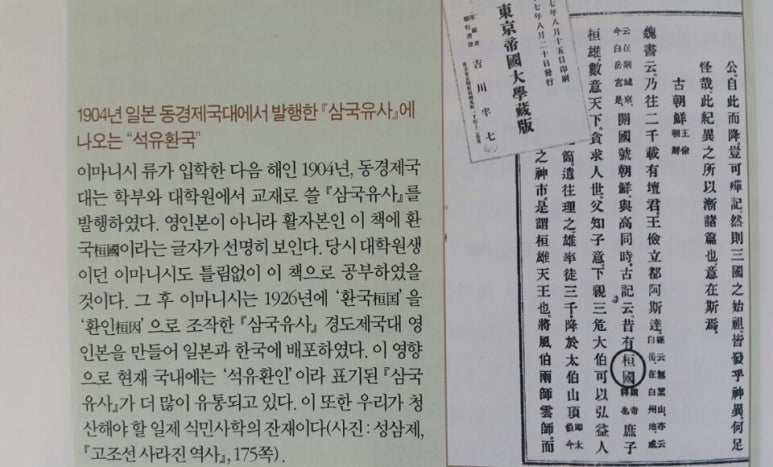 1904년 일본 동경제국대에서 발행한 『삼국유사』에
나오는 “석유환국”
이마니시 류가 입학한 다음 해인 1904년, 동경제국
대는 학부와 대학원에서 교재로 쓸 『삼국유사』를
발행하였다. 영인본이 아니라 활자본인 이 책에 환
국桓國이라는 글자가 선명히 보인다. 당시 대학원생
이던 이마니시도 틀림없이 이 책으로 공부하였을
것이다. 그 후 이마니시는 1926년에 ‘환국桓国’을
‘환인桓因’으로 조작한 『삼국유사』 경도제국대 영
인본을 만들어 일본과 한국에 배포하였다. 이 영향
으로 현재 국내에는 ‘석유환인’이라 표기된 『삼국
유사』가 더 많이 유통되고 있다. 이 또한 우리가 청
산해야 할 일제 식민사학의 잔재이다(사진 : 성삼제,
『고조선 사라진 역사』, 175쪽).
七年八月十五日印刷
七年八月二十日發行
東京帝國大學藏版
吉川半七
公、自此而降、豈可殫記、然則三國之始祖、皆發乎神異、何足
怪哉、此紀異之所以漸諸篇也、意在斯焉、
古朝鮮 王儉朝鮮
魏書云、乃往二千載有壇君王儉、立都阿斯達、經云無葉山亦云白岳、在白州地、或
云在開城東、今白岳宮是、開國號朝鮮、與高同時、古記云、昔有桓國、謂帝釋也 庶子
桓雄、數意天下、貪求人世、父知子意、下視三危大伯可以弘益人
箇遣往理之、雄率徒三千、降於太伯山頂 即太伯今
之神市、是謂桓雄天王也、將風伯雨師雲師、而